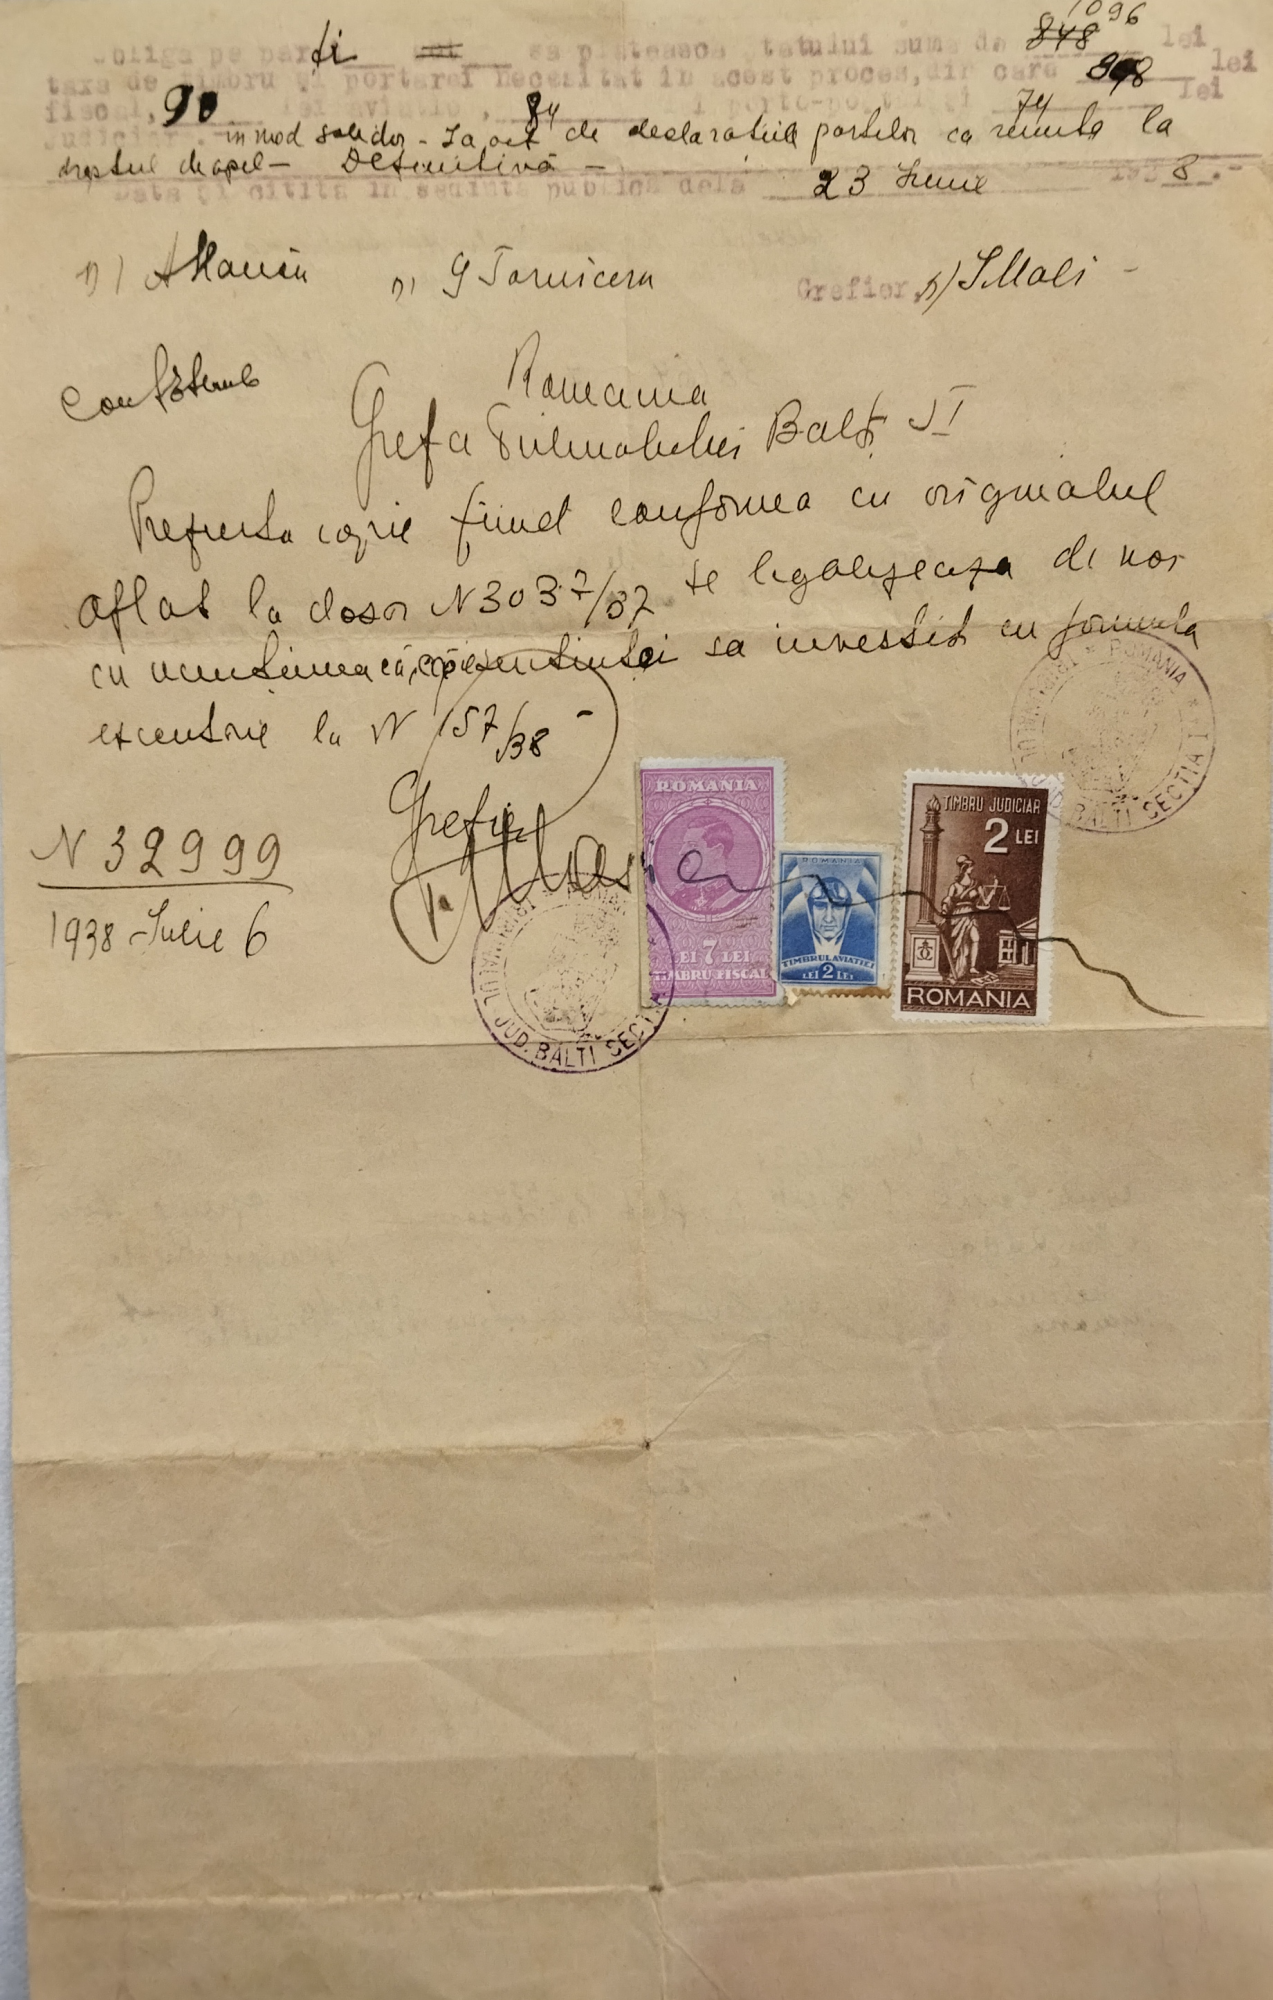 obliga pe parați sa plăteasca statului suma de 848 1096 lei
taxa de timbru și portarei necesitat in acest proces, din care 848 lei
fiscal, 90 lei aviatie, 84 74 lei
judiciar in mod solidar - Ia act de declaratiile partilor ca renunta la
dreptul de apel - Definitivă -
Data și citita in sedinta publica dela 23 Iunie 1938.-
n) n) G Torniceru Grefier, n)
Romania
Grefa Tribunalului Balti S I
Prezenta copie fiind conforma cu originalul
aflat la dosar N 3037/37 se legalizeaza de noi
cu mentiunea că, sentintei sa investit cu formula
executorie la N 157/38 -
Grefier
N 32999
1938 Iulie 6
ROMANIA
LEI 7 LEI
TIMBRU FISCAL
ROMANIA
TIMBRUL AVIATIEI
LEI 2 LEI
TIMBRU JUDICIAR
2 LEI
ROMANIA
JUD. BALTI SECTIA
* ROMANIA *
JUD. BALTI SECTIA I